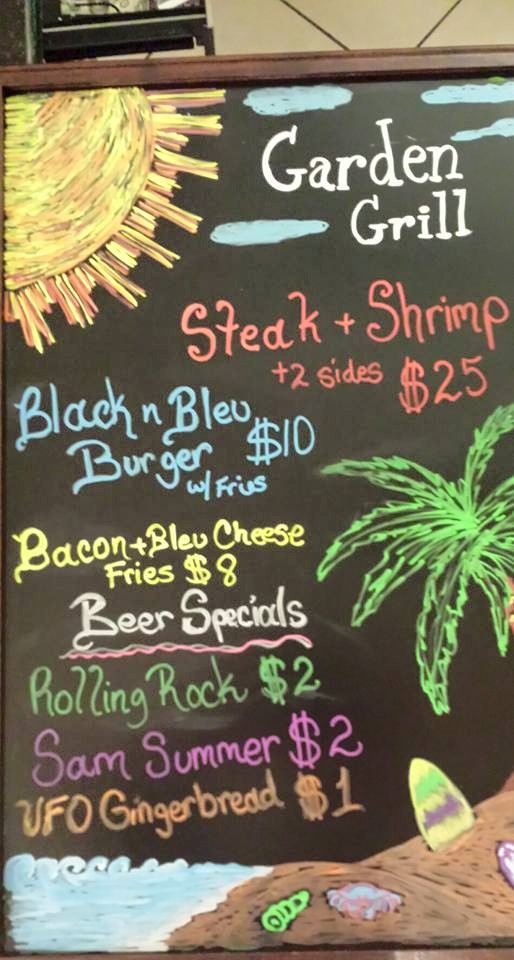 Garden
Grill
Steak + Shrimp
+2 sides $25
Black n Bleu
Burger $10
w/ Fries
Bacon + Bleu Cheese
Fries $8
Beer Specials
Rolling Rock $2
Sam Summer $2
UFO Gingerbread $1